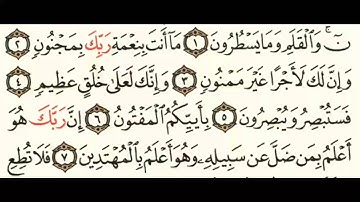 نٓ ۚ وَٱلْقَلَمِ وَمَا يَسْطُرُونَ ١ مَآ أَنتَ بِنِعْمَةِ رَبِّكَ بِمَجْنُونٍ ٢
وَإِنَّ لَكَ لَأَجْرًا غَيْرَ مَمْنُونٍ ٣ وَإِنَّكَ لَعَلَىٰ خُلُقٍ عَظِيمٍ ٤
فَسَتُبْصِرُ وَيُبْصِرُونَ ٥ بِأَييِّكُمُ ٱلْمَفْتُونُ ٦ إِنَّ رَبَّكَ هُوَ
أَعْلَمُ بِمَن ضَلَّ عَن سَبِيلِهِۦ وَهُوَ أَعْلَمُ بِٱلْمُهْتَدِينَ ٧ فَلَا تُطِعِ